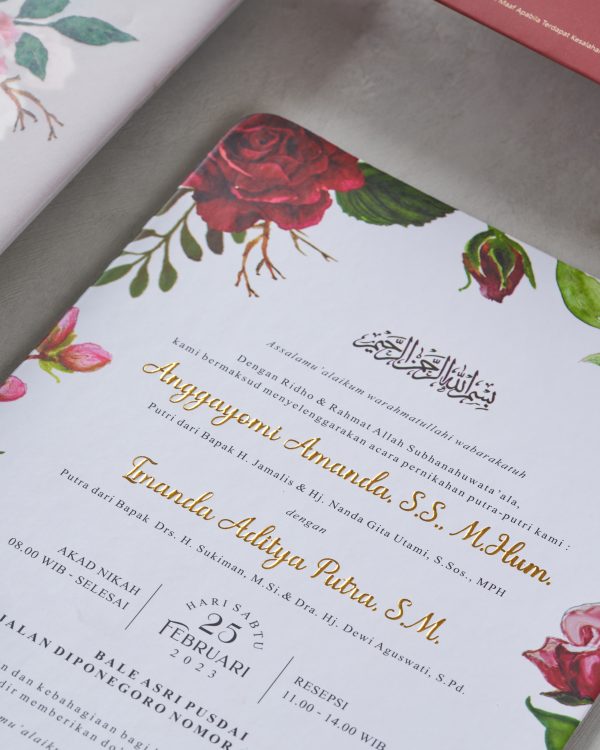 Maaf Apabila Terdapat Kesalahan
بِسْمِ اللهِ الرَّحْمٰنِ الرَّحِيْمِ
Assalamu'alaikum warahmatullahi wabarakatuh
Dengan Ridho & Rahmat Allah Subhanahuwata'ala,
kami bermaksud menyelenggarakan acara pernikahan putra-putri kami :
Anggayomi Amanda, S.S., M.Hum.
Putri dari Bapak H. Jamalis & Hj. Nanda Gita Utami, S.Sos., MPH
dengan
Imanda Aditya Putra, S.M.
Putra dari Bapak Drs. H. Sukiman, M.Si. & Dra. Hj. Dewi Aguswati, S.Pd.
AKAD NIKAH
08.00 WIB - SELESAI
HARI SABTU
25
FEBRUARI
2023
RESEPSI
11.00 - 14.00 WIB
BALE ASRI PUSDAI
JALAN DIPONEGORO NOMOR
dan kebahagiaan bagi
memberikan